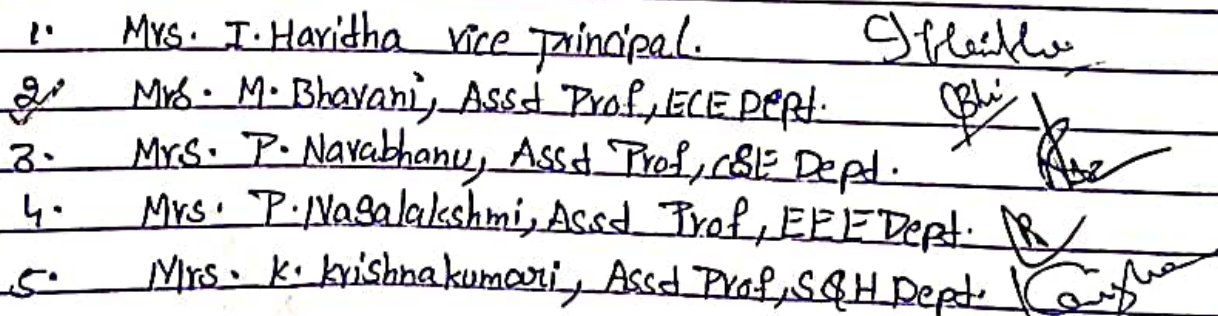 1. Mrs. I. Haritha vice principal.
2. Mrs. M. Bhavani, Asst Prof, ECE Dept.
3. Mrs. P. Navabhanu, Asst Prof, CSE Dept.
4. Mrs. P. Nagalakshmi, Asst Prof, EEE Dept.
5. Mrs. K. Krishnakumari, Asst Prof, S&H Dept.